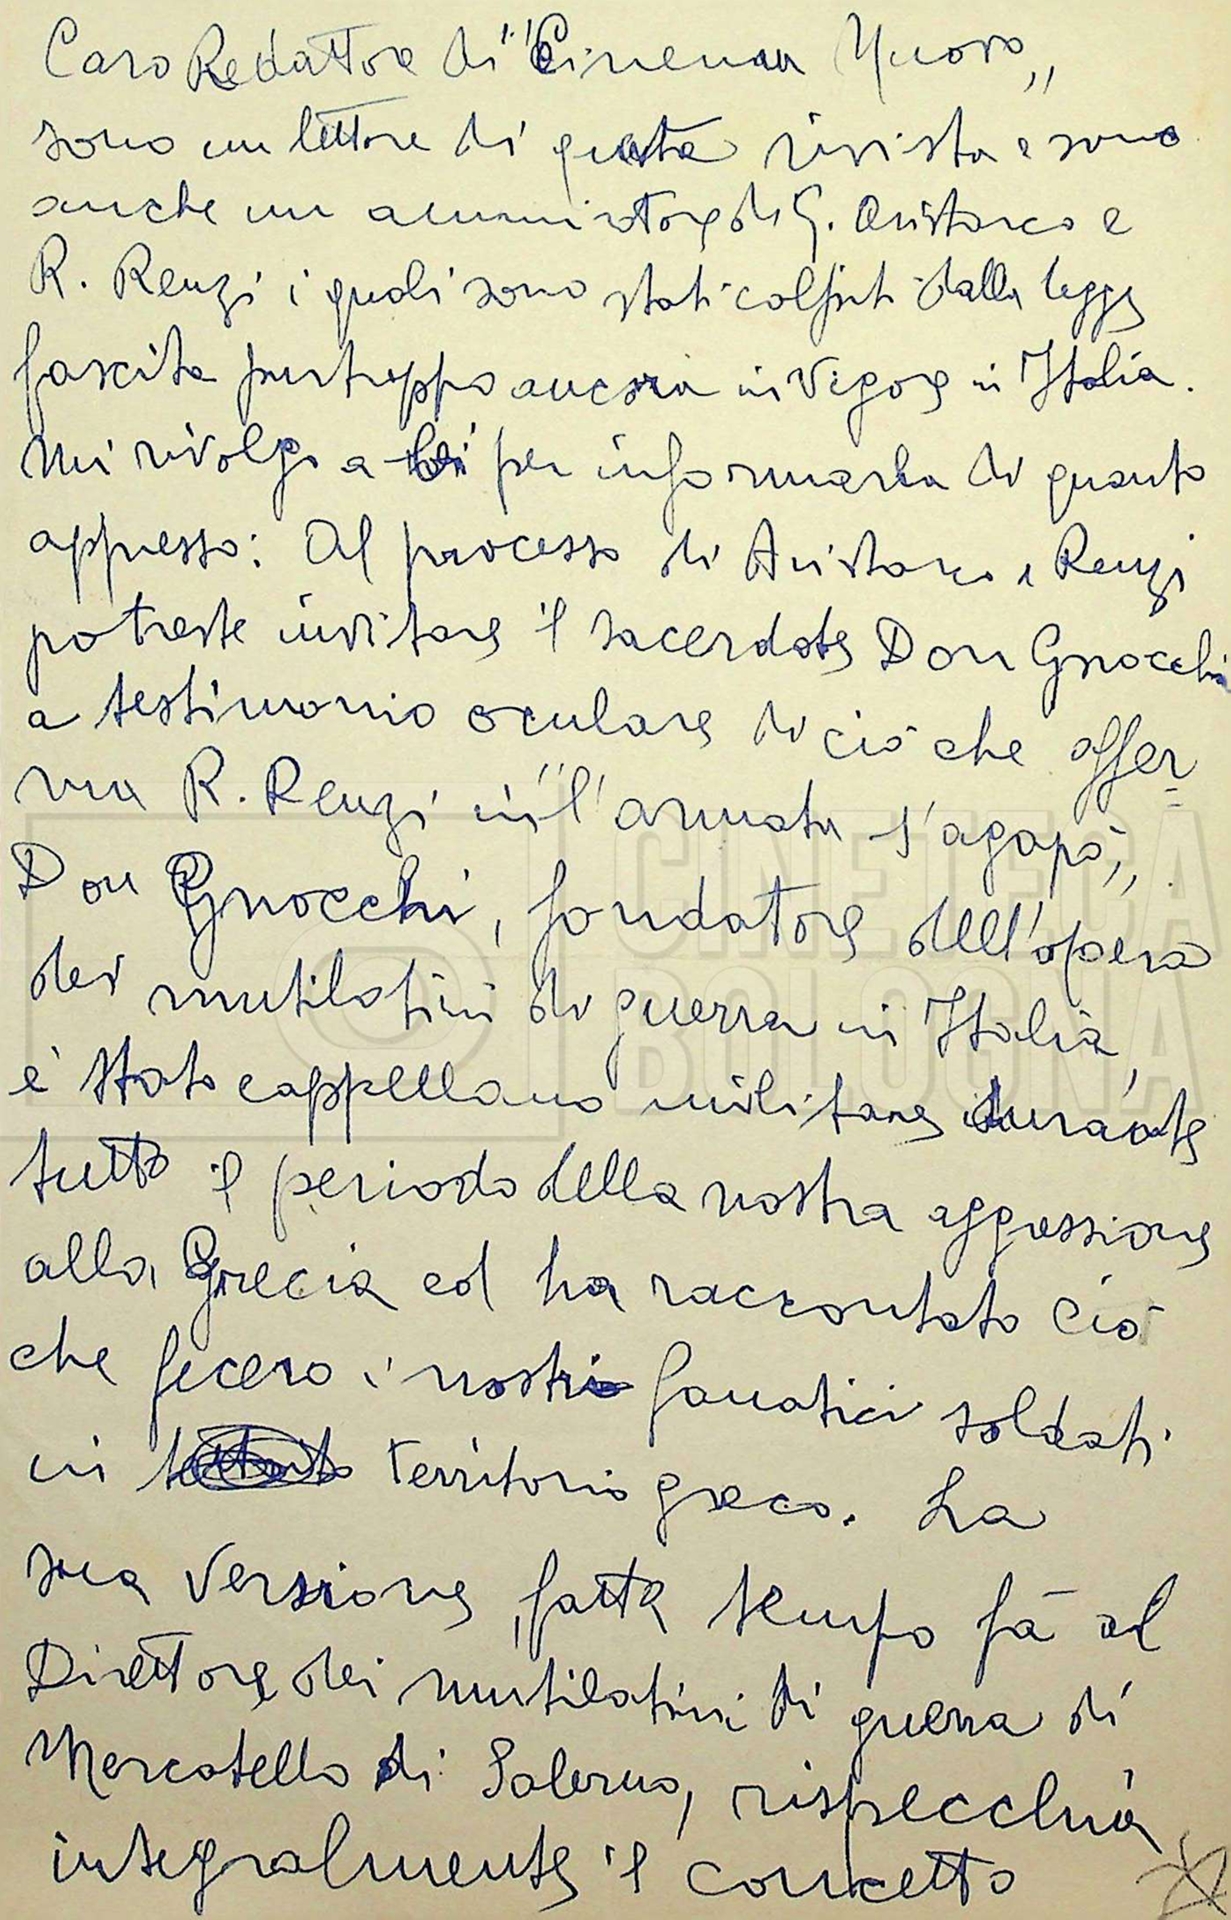 Caro Redattore di "Cinema Nuovo„
sono un lettore di questa rivista e sono
anche un ammiratore di G. Aristarco e
R. Renzi i quali sono stati colpiti dalla legge
fascista purtroppo ancora in vigore in Italia.
Mi rivolgo a Lei per informarla di quanto
appresso: Al processo di Aristarco e Renzi
potreste invitare il sacerdote Don Gnocchi
a testimonio oculare di ciò che affer-
ma R. Renzi in "l'armata s'agapò„.
Don Gnocchi, fondatore dell'opera
dei mutilatini di guerra in Italia,
è stato cappellano militare durante
tutto il periodo della nostra aggressione
alla Grecia ed ha raccontato ciò
che fecero i nostri fanatici soldati
in territorio greco. La
sua versione, fatta tempo fà al
Direttore dei mutilatini di guerra di
Mercatello di Salerno, rispecchia
integralmente il concetto
CINETECA
BOLOGNA